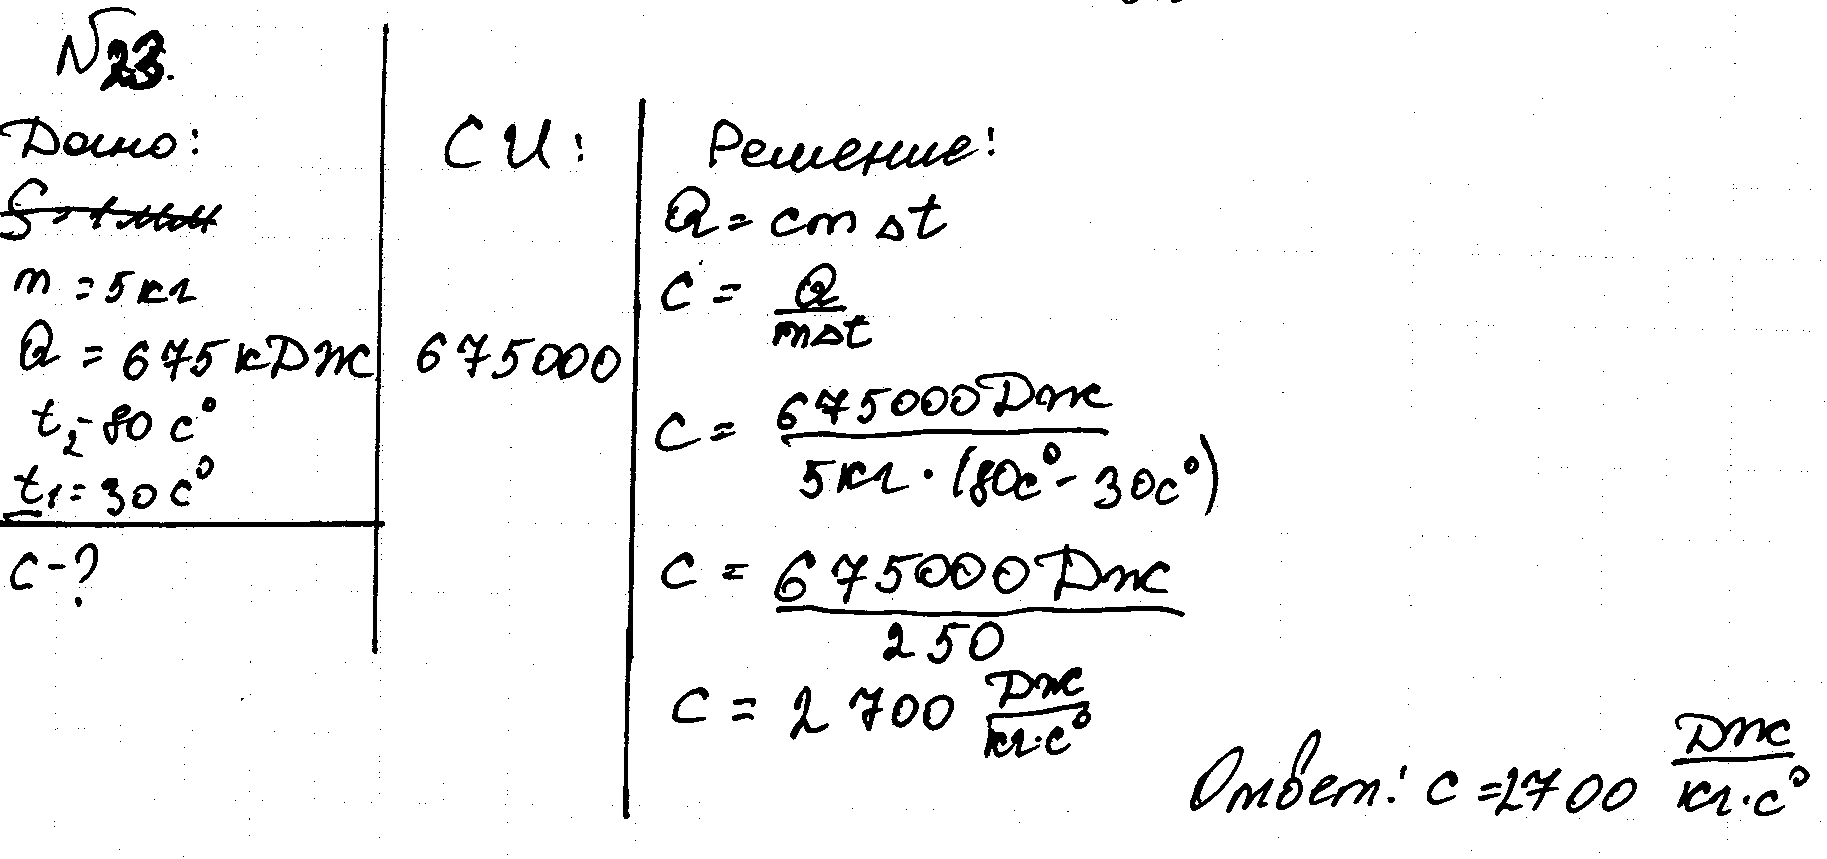 №23.
Дано:
m = 5 кг
Q = 675 кДж
t₂ - 80 c°
t₁ = 30 c°
c - ?
СИ:
675000
Решение:
Q = cm Δt
c = Q / mΔt
c = 675000 Дж / 5 кг · (80c° - 30c°)
c = 675000 Дж / 250
c = 2 700 Дж / кг·c°
Ответ: c = 2700 Дж / кг·c°